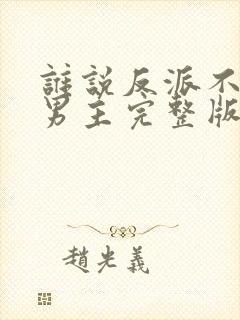 誰說反派不
男主完整版
趙光義